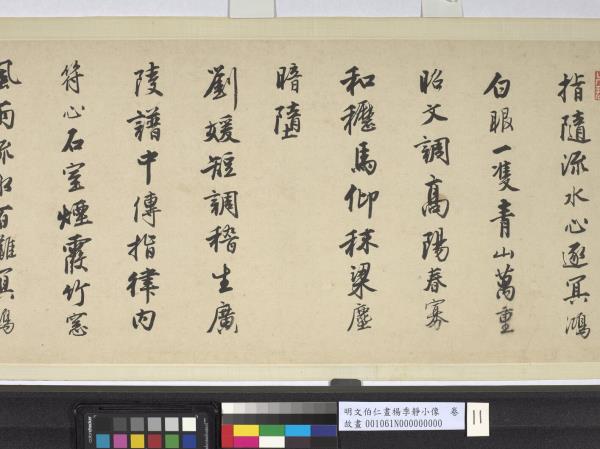 指隨流水心逐冥鴻
白眼一雙青山萬重
昭文調高陽春寡
和穮馬仰秣梁塵
暗墮
劉媛短調稽生廣
陵譜中傳指律內
符心石室煙霞竹窓
風雨流水百離冥鴻
明文伯仁畫楊季靜小像 卷
故畫 001061N000000000
11